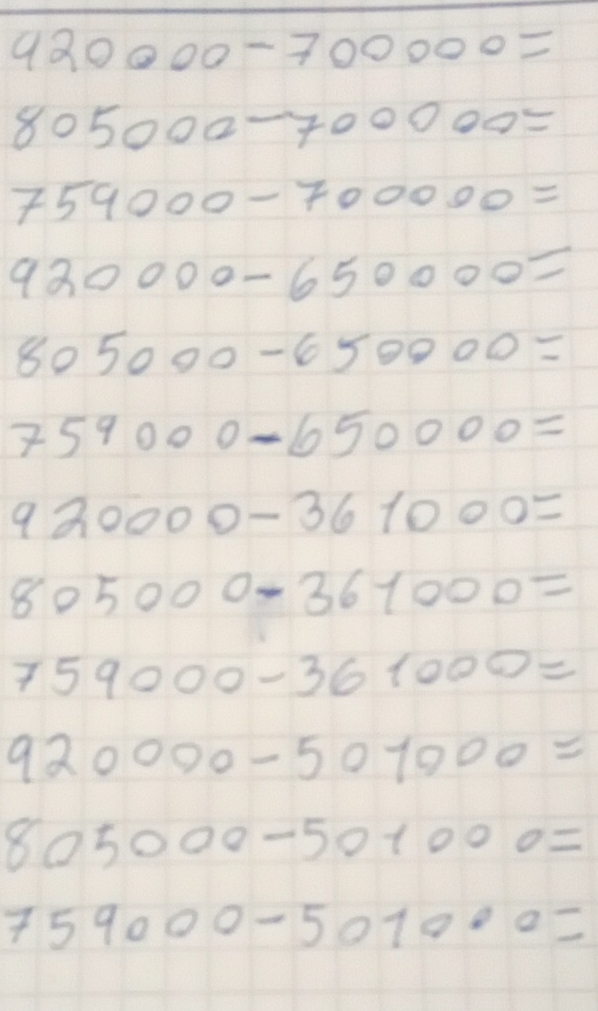 920000-700000=
805000-700000=
759000-700000=
920000-650000=
805000-650000=
759000-650000=
920000-361000=
805000-361000=
759000-361000=
920000-501000=
805000-501000=
759000-501000=